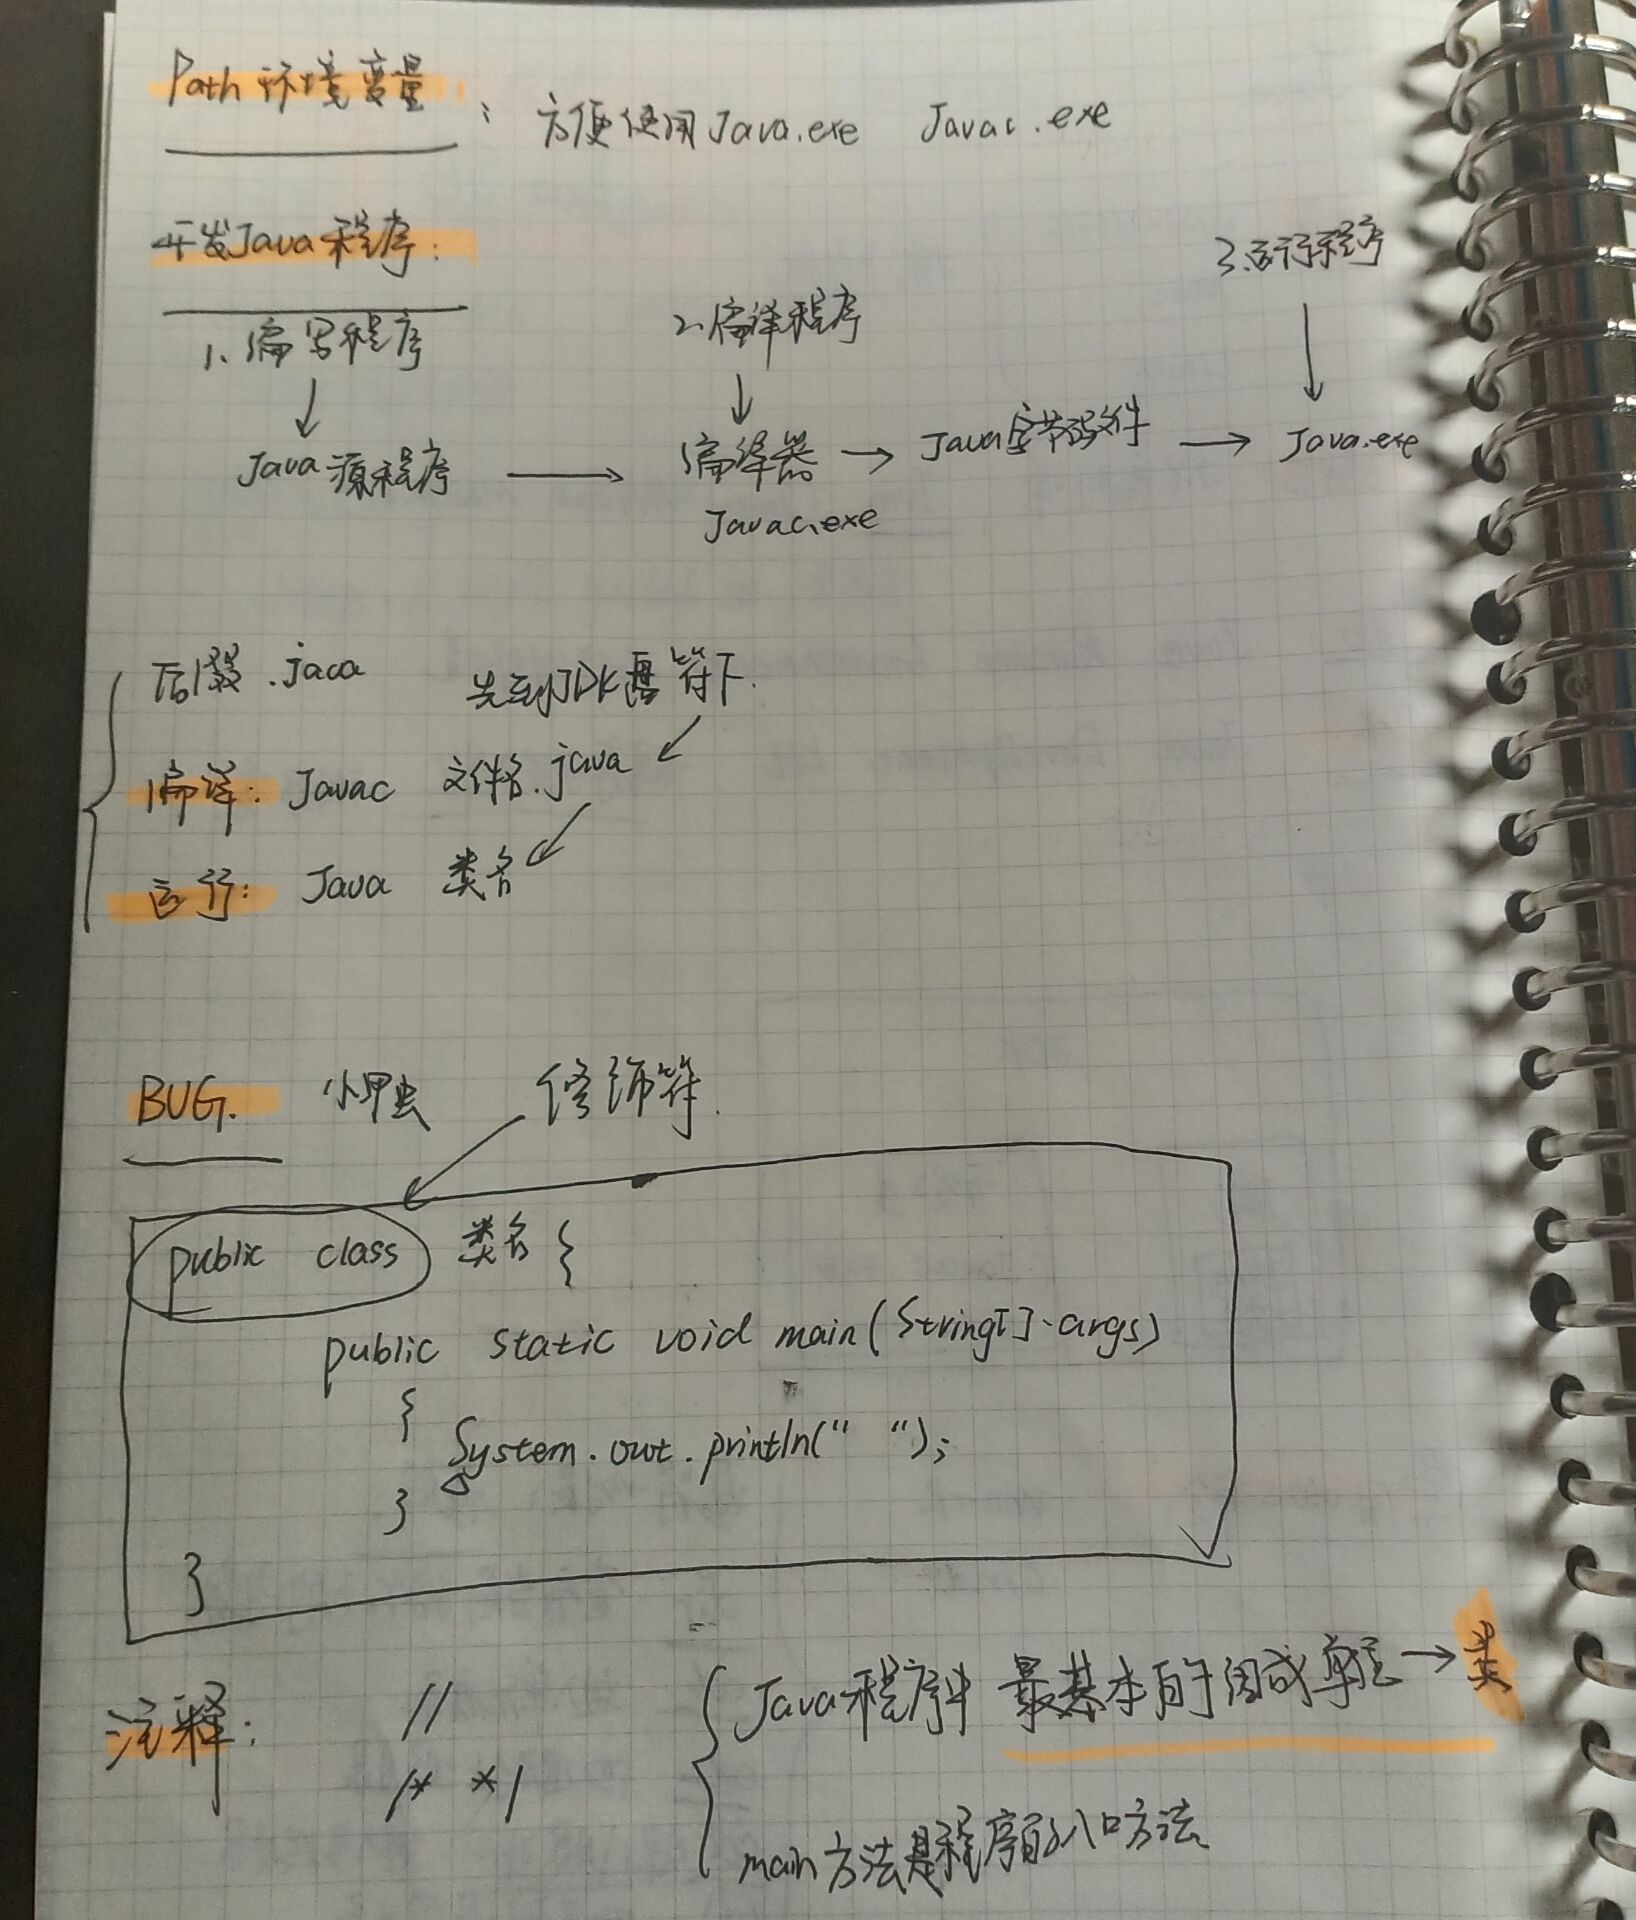 Path环境变量: 方便使用Java.exe Javac.exe
开发Java程序:
1、编写程序 2、编译程序 3.运行程序
↓ ↓ ↓
Java源程序 → 编译器 → Java字节码文件 → Java.exe
Javac.exe
后缀.java 先到JDK盘符下.
编译: Javac 文件名.java
运行: Java 类名
BUG. 小甲虫 修饰符.
public class 类名{
public static void main(String[] args)
{
System.out.println(" ");
}
}
注释: //
/* */
Java程序中 最基本的组成单位→类
main方法是程序的入口方法